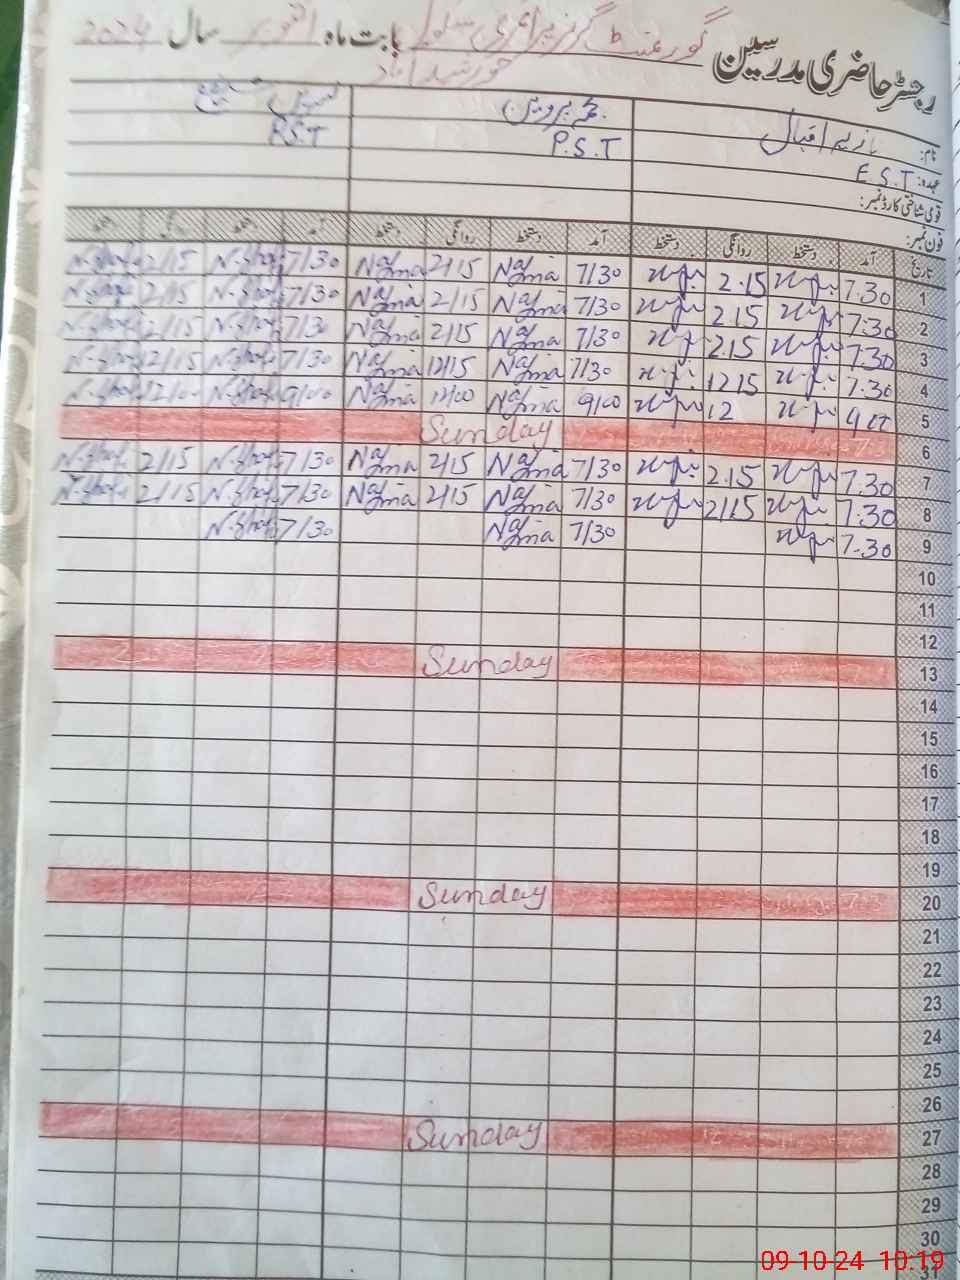 رجسٹر حاضری مدرسین گورنمنٹ گرلز پرائمری سکول بابت ماہ اکتوبر سال 2024
خورشید آباد
نام: اقبال نجمہ پروین
عہدہ: E.S.T P.S.T P.S.T
قومی شناختی کارڈ نمبر:
فون نمبر:
تاریخ آمد دستخط روانگی دستخط آمد دستخط روانگی دستخط
1 7.30 2.15 7/30 Najma 2/15 Najma 7/30 N.Shafi 2/15 N.Shafi
2 7:30 2.15 7/30 Najma 2/15 Najma 7/30 N.Shafi 2/15 N.Shafi
3 7:30 2.15 7/30 Najma 2/15 Najma 7/30 N.Shafi 2/15 N.Shafi
4 7.30 12 15 7/30 Najma 12/15 Najma 7/30 N.Shafi 12/15 N.Shafi
5 9 00 12 9/00 Najma 12/00 Najma 9/00 N.Shafi 12/00 N.Shafi
6 Sunday
7 7.30 2.15 7/30 Najma 2/15 Najma 7/30 N.Shafi 2/15 N.Shafi
8 7.30 2/15 7/30 Najma 2/15 Najma 7/30 N.Shafi 2/15 N.Shafi
9 7.30 7/30 Najma 7/30 N.Shafi
10
11
12
13 Sunday
14
15
16
17
18
19
20 Sunday
21
22
23
24
25
26
27 Sunday
28
29
30
31
09-10-24 10:19